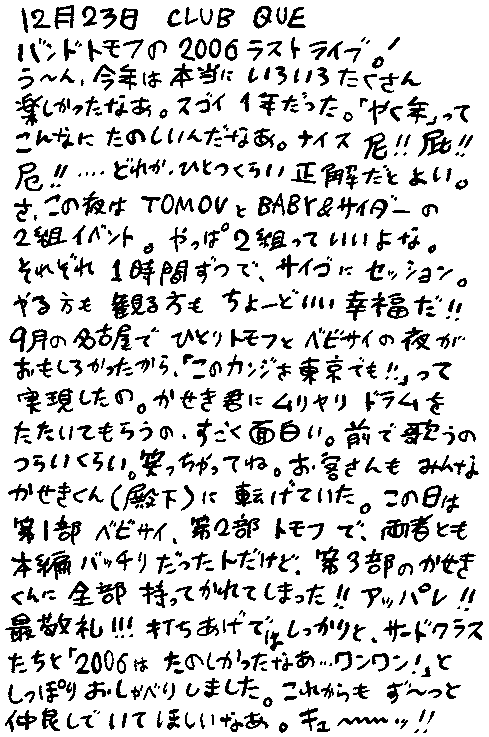 12月23日 CLUB QUE
バンドトモフの2006ラストライブ。!
う〜ん、今年は本当にいろいろたくさん
楽しかったなあ。スゴイ1年だった。「やく年」って
こんなにたのしいんだなあ。ナイス 尼!! 屁!!
尼!! ‥‥どれか、ひとつくらい正解だとよい。
さ、この夜はTOMOVとBABY&サイダーの
2組イベント。やっぱ2組っていいよな。
それぞれ1時間ずつで、サイゴにセッション。
やる方も観る方もちょーどいい幸福だ!!
9月の名古屋でひとりトモフとベビサイの夜が
おもしろかったから、「このカンジを東京でも!!」って
実現したの。かせき君にムリヤリドラムを
たたいてもらうの、すごく面白い。前で歌うの
つらいくらい。笑っちゃってね。お客さんもみんな
かせきくん(殿下)に転げていた。この日は
第1部ベビサイ、第2部トモフで、両者とも
本編バッチリだったんだけど、第3部のかせき
くんに全部持ってかれてしまった!! アッパレ!!
最敬礼!!! 打ちあげではしっかりと、サードクラス
たちと「2006はたのしかったなあ…ワンワン!」と
しっぽりおしゃべりしました。これからもず〜っと
仲良しでいてほしいなあ。キュ〜〜〜ッ!!